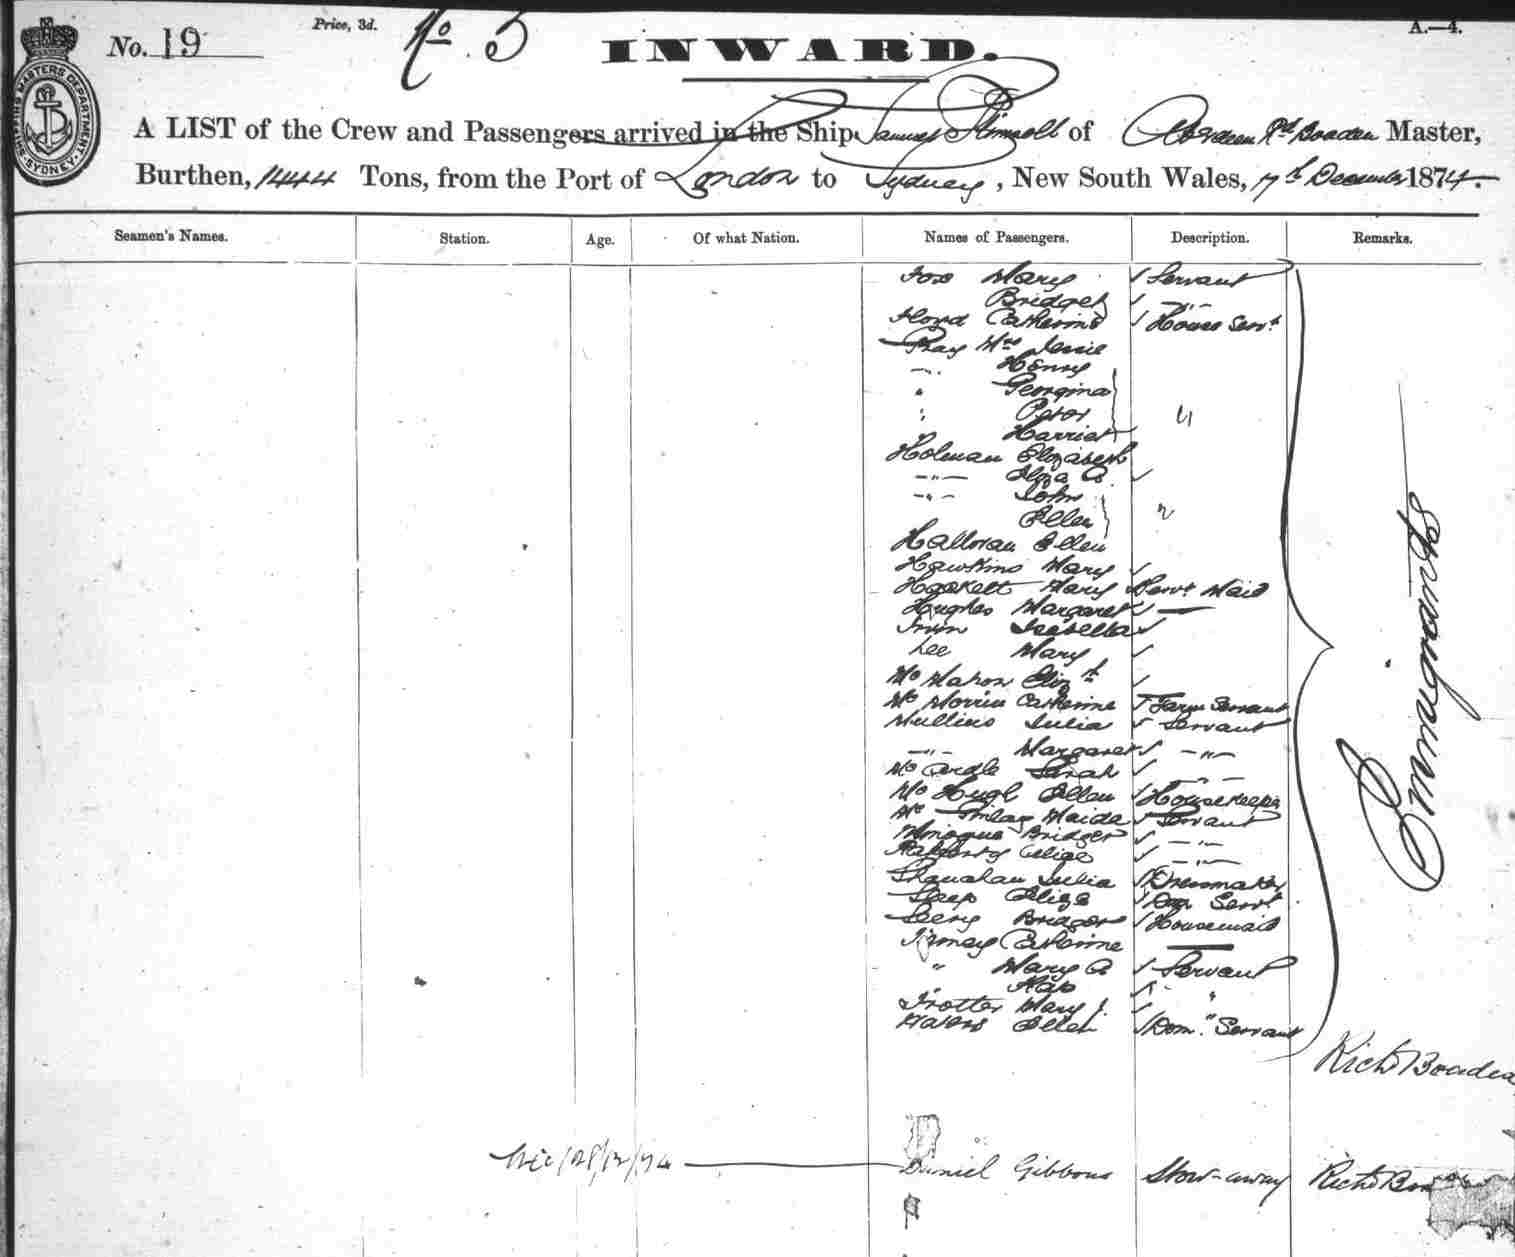 No. 19
Price, 3d.
No. 5
INWARD.
A.—4.
SHIPPING MASTERS DEPARTMENT SYDNEY
A LIST of the Crew and Passengers arrived in the Ship Samuel Plimsoll of Aberdeen Rd Boaden Master,
Burthen, 1444 Tons, from the Port of London to Sydney, New South Wales, 7th December 1874.
Seamen's Names. Station. Age. Of what Nation. Names of Passengers. Description. Remarks.
Fox Mary ✓ Servant
Bridget ✓ -"-
Floyd Catherine ✓ House Servt
Mrs Jessie
-"- Henry
" Georgina
" Peter "
" Harriet
Holman Elizabeth
-"- Eliza A. ✓
-"- John
Ellen "
Halloran Ellen
Hawkins Mary ✓
Haskett Mary Servt Maid
Hughes Margaret ✓ —
Irwin Isabella ✓
Lee Mary ✓
McMahon Elizth ✓
Catherine ✓ Farm Servant
Mullins Julia ✓ Servant
-"- Margaret ✓ -"-
McArdle Sarah ✓ -"-
McHugh Ellen ✓ Housekeeper
Mc ✓ Servant
Minogue Bridget ✓ -"-
Rafferty Eliza ✓ -"-
Shanahan Julia ✓ Dressmaker
Eliza ✓ Servt
Bridget ✓ Housemaid
Catherine —
" Mary A ✓ Servant
" ✓ "
Trotter Mary J. ✓
Waters Ellen ✓ Dom. Servant
Emmigrants
Richd Boaden
28/12/74 — Daniel Gibbons Stow-away Richd